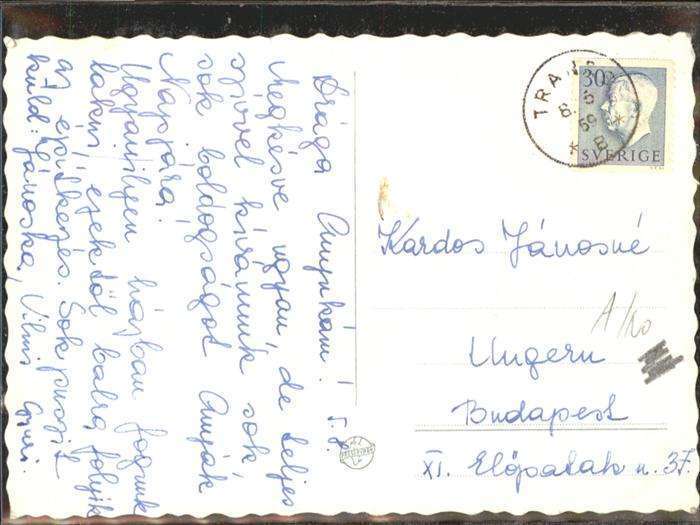 Drága Anyukám!
Megkésve ugyan, de teljes
szívvel kívánunk sok,
sok boldogságot Anyák
Napjára!
Ugyanilyen házban fogunk
lakni, ezektől balra folyik
az építkezés. Sok puszit
küld: Jánoska, Vilmi Gyuri.
TRANÅS
30
SVERIGE
Kardos Jánosné
Ungern
Budapest
XI. Előpatak u. 37.